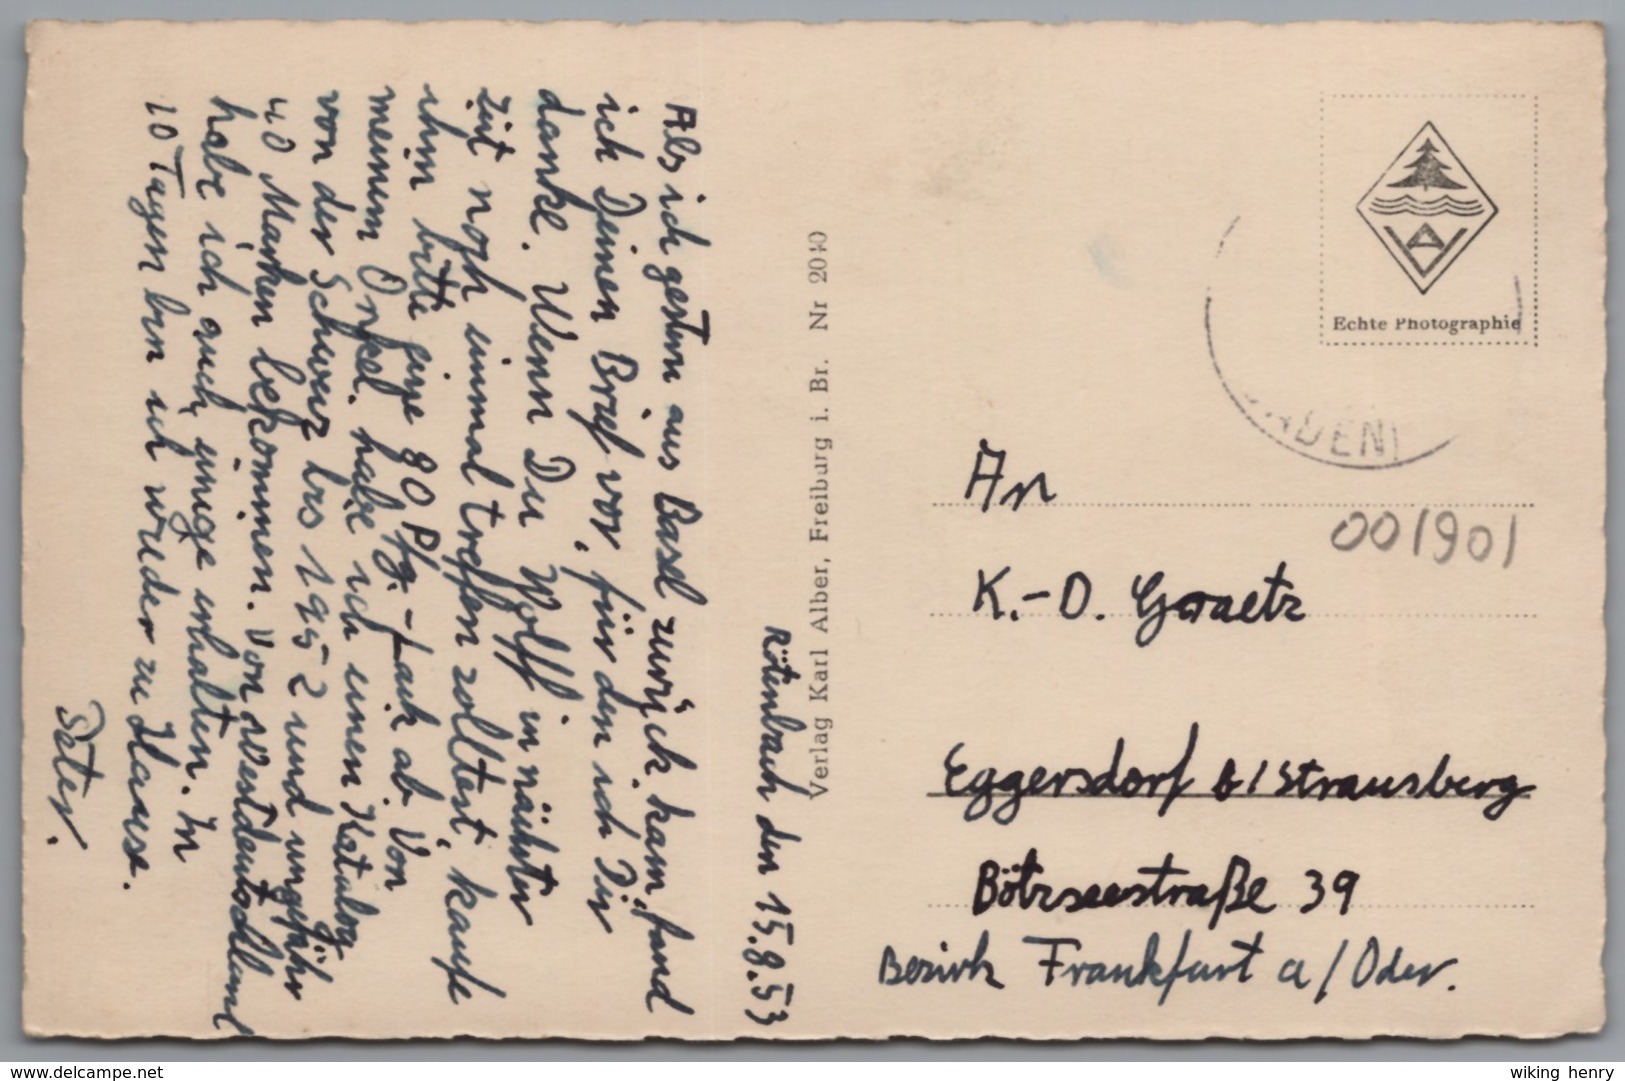 Rötenbach den 15.8.53
Als ich gestern aus Basel zurück kam, fand
ich Deinen Brief vor, für den ich Dir
danke. Wenn Du Wolff in nächster
Zeit noch einmal treffen solltest, kaufe
ihm bitte eine 80 Pfg. - ab. Von
meinem Onkel habe ich einen Katalog
von der Schweiz bis 1952 und ungefähr
40 Marken bekommen. Von Westdeutschland
habe ich auch einige erhalten. In
10 Tagen bin ich wieder zu Hause.
Peter.
Verlag Karl Alber, Freiburg i. Br. Nr 2040
Echte Photographie
An
001901
K.-D. Graetz
Eggersdorf b/Strausberg
Bötzseestraße 39
Bezirk Frankfurt a/Oder.
www.delcampe.net
wiking henry